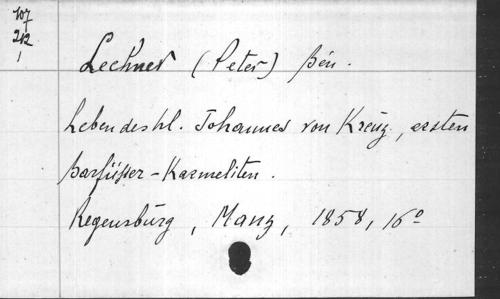 107
212
1
Lechner (Peter) Bén.
Leben des hl. Johannes von Kreuz, ersten
Barfüsser-Karmeliten.
Regensburg, Manz, 1858, 16°